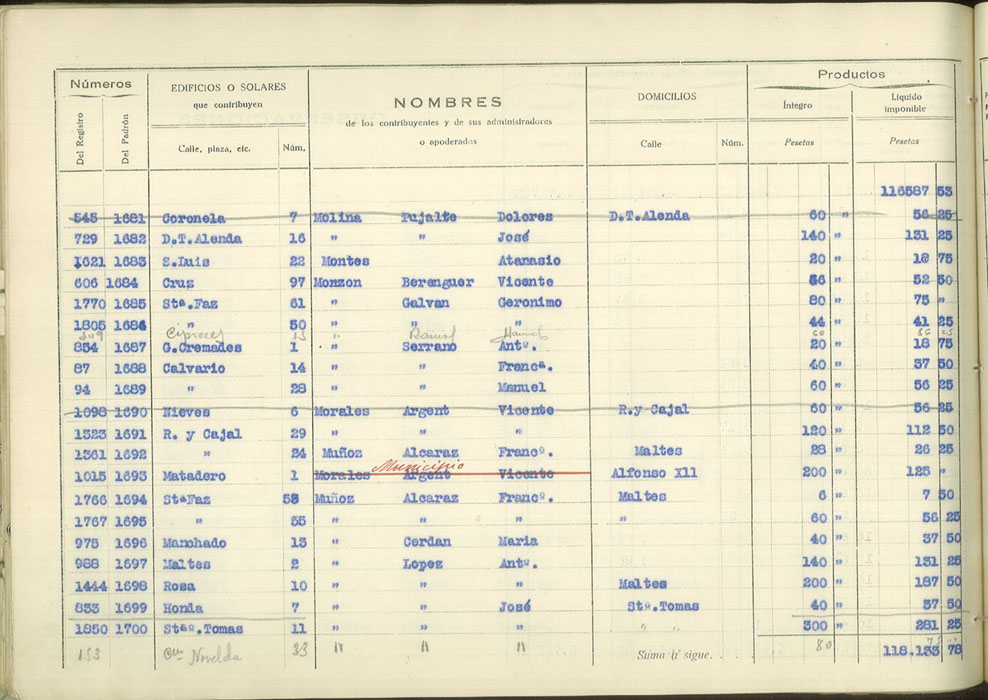 Números EDIFICIOS O SOLARES que contribuyen NOMBRES de los contribuyentes y de sus administradores o apoderados DOMICILIOS Productos
Del Registro Del Padrón Calle, plaza, etc. Núm. Calle Núm. Íntegro Pesetas Líquido imponible Pesetas
116587 53
545 1681 Coronela 7 Molina Pujalte Dolores D.T.Alenda 60 " 56 25
729 1682 D.T.Alenda 16 " " José 140 " 131 25
1621 1683 S.Luis 22 Montes Atanasio 20 " 18 75
606 1684 Cruz 97 Monzon Berenguer Vicente 56 " 52 50
1770 1685 Stª.Faz 61 " Galvan Geronimo 80 " 75 "
1805 1686 " 50 " " " 44 " 41 25
Cipreses 15 "
854 1687 G.Cremades 1 " Serrano Antº. 20 " 18 75
87 1688 Calvario 14 " " Francª. 40 " 37 50
94 1689 " 28 " " Manuel 60 " 56 25
1098 1690 Nieves 6 Morales Argent Vicente R.y Cajal 60 " 56 25
1523 1691 R. y Cajal 29 " " " 120 " 112 50
1361 1692 " 24 Muñoz Alcaraz Francº. Maltes 28 " 26 25
Municipio
1015 1693 Matadero 1 Morales Argent Vicente Alfonso Xll 200 " 125 "
1766 1694 StªFaz 58 Muñoz Alcaraz Francº. Maltes 6 " 7 50
1767 1695 " 55 " " " " 60 " 56 25
975 1696 Manchado 13 " Cerdan Maria 40 " 37 50
988 1697 Maltes 2 " Lopez Antº. 140 " 131 25
1444 1698 Rosa 10 " " " Maltes 200 " 187 50
833 1699 Honda 7 " " José Stº.Tomas 40 " 37 50
1850 1700 Stº.Tomas 11 " " " " 300 " 281 25
153 Novelda 33 " " " 80
Suma y sigue. 118.133 78